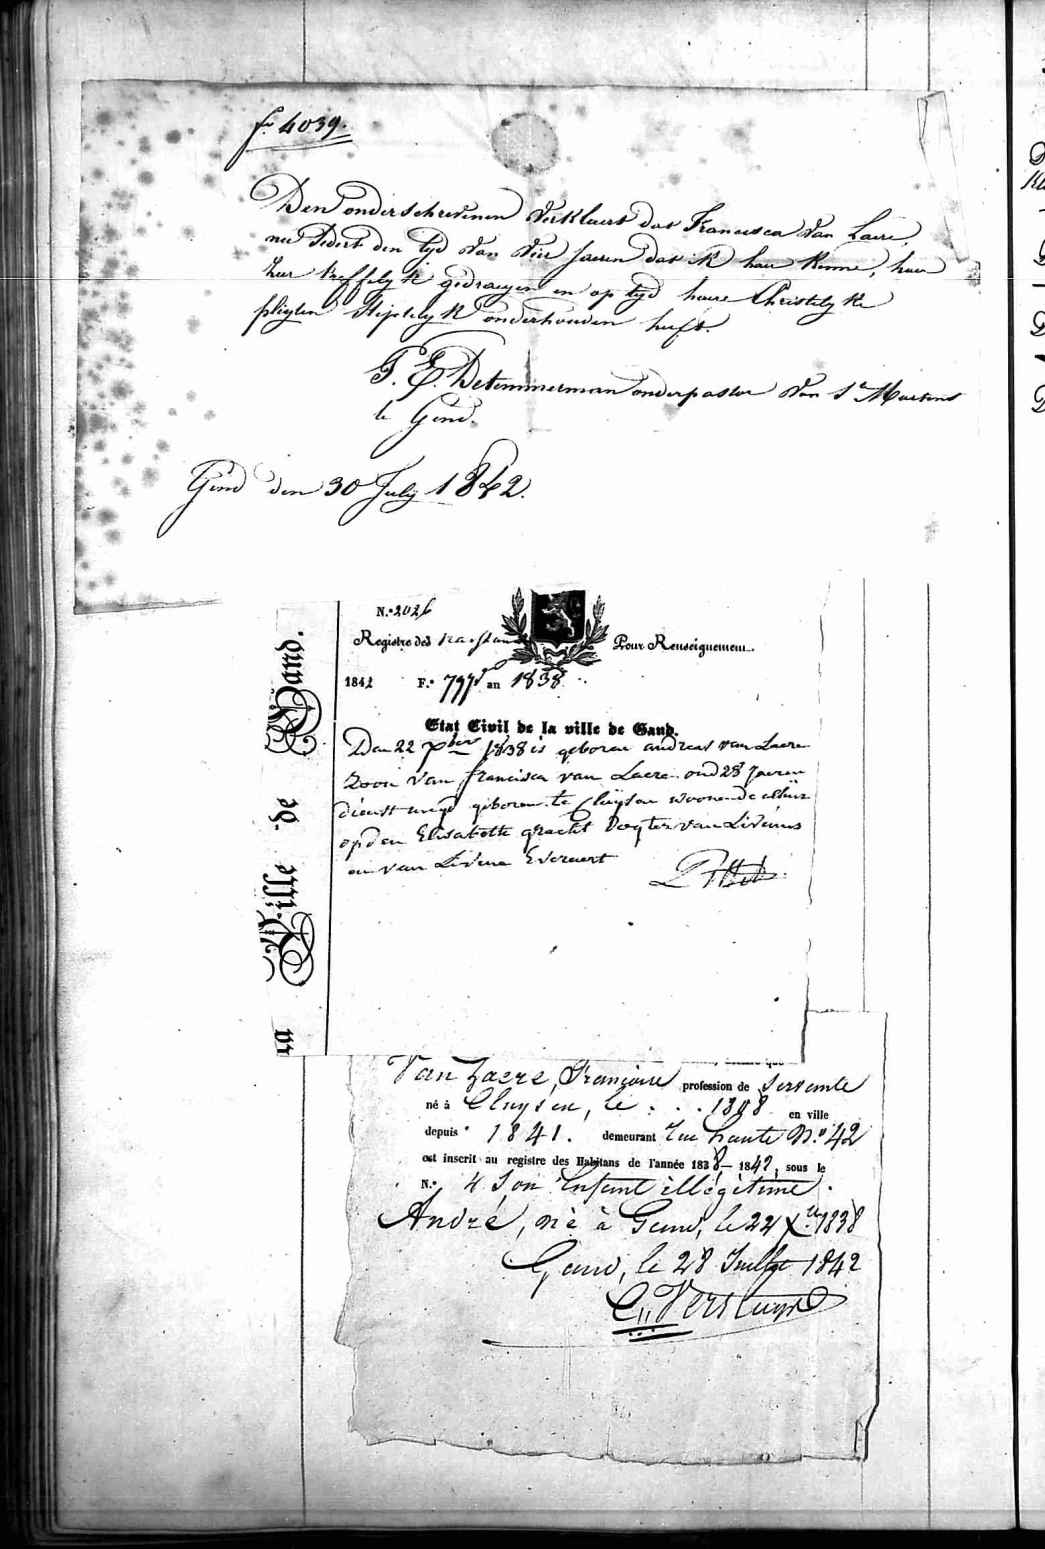 fo 4039.
Den onderschrevenen verklaert dat Francisca Van Laere,
nu sedert den tyd van vier jaeren dat ik haer kenne, haer
zeer treffelyk gedraegen en op tyd haere Christelyke
pligten stiptelyk onderhouden heeft.
F. E. Detemmerman onderpastor van St Martens
te Gend.
Gend den 30 July 1842.
N.º 2026
Registre des Pour Renseignement.
1842 F.º 797 an 1838
Etat Civil de la ville de Gand.
Den 22 xber 1838 is geboren andreas van Laere
zoon van francisca van Laere oud 28 Jaeren
dienstmeyd geboren te Cluysen woonende alhier
op den Elisabette gracht Dogter van Livinus
en van Livine Everaert
Ville de Gand.
Van Laere, Françoise profession de Servante
né à Cluysen, le . . . 1808 en ville
depuis 1841. demeurant rue haute N.º 42
est inscrit au registre des Habitans de l'année 1838 – 1842, sous le
N.º 4 Son Enfant illégitime.
André, né à Gand, le 22 xbre 1838
Gand, le 28 Juillet 1842